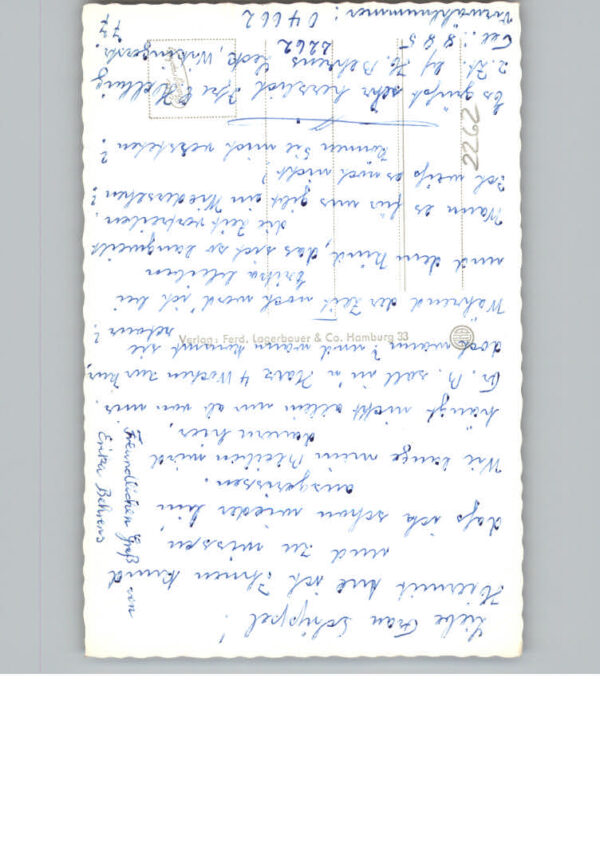 Liebe Frau Schippel!
Hiermit tue ich Ihnen kund
und zu wissen
daß ich schon wieder bin
ausgerissen.
Wie lange mein Bleiben wird
dauern hier,
hängt nicht allein nur ab von mir.
Fr. B. soll in'n Harz 4 Wochen zur Kur,
doch wann? und wann kommt sie
retour?
Während der Zeit noch werd' ich bei
Erika bleiben
und dem Kind, das sich so langweilt
die Zeit vertreiben.
Wann es für uns gibt ein Wiedersehen?
Ich weiß es noch nicht?
Können Sie mich verstehen?
Es grüßt sehr herzlich Ihre E Hellwig
z. Zt. bf. H. Behrens Leck,
2262
Tel.: 885
Vorwählnummer: 04662
77
Freundlichen Gruß von
Erika Behrens
Verlag: Ferd. Lagerbauer & Co. Hamburg 33
2262